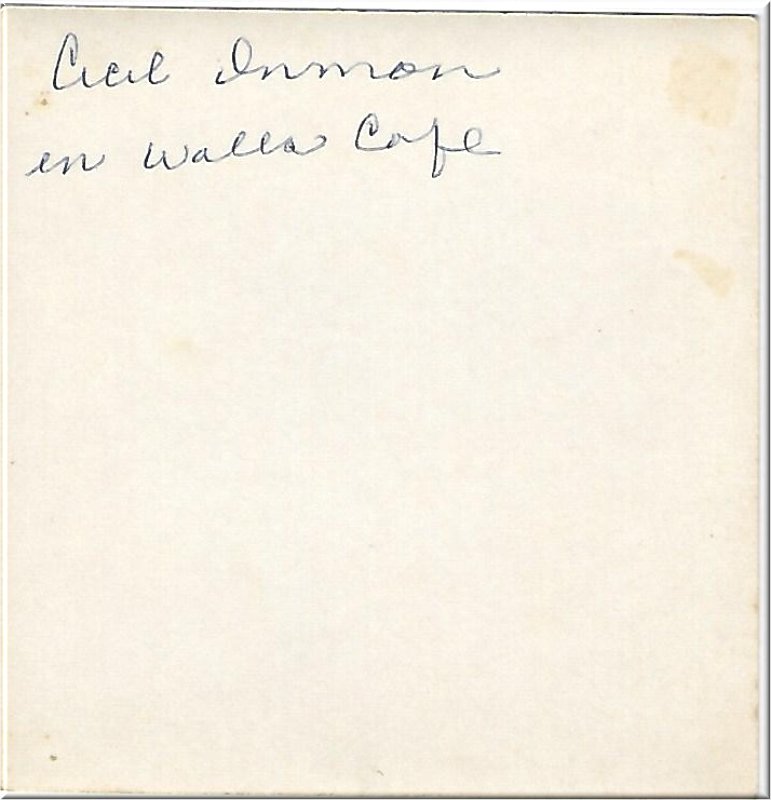 Cecil Inmon
in Walla Cafe